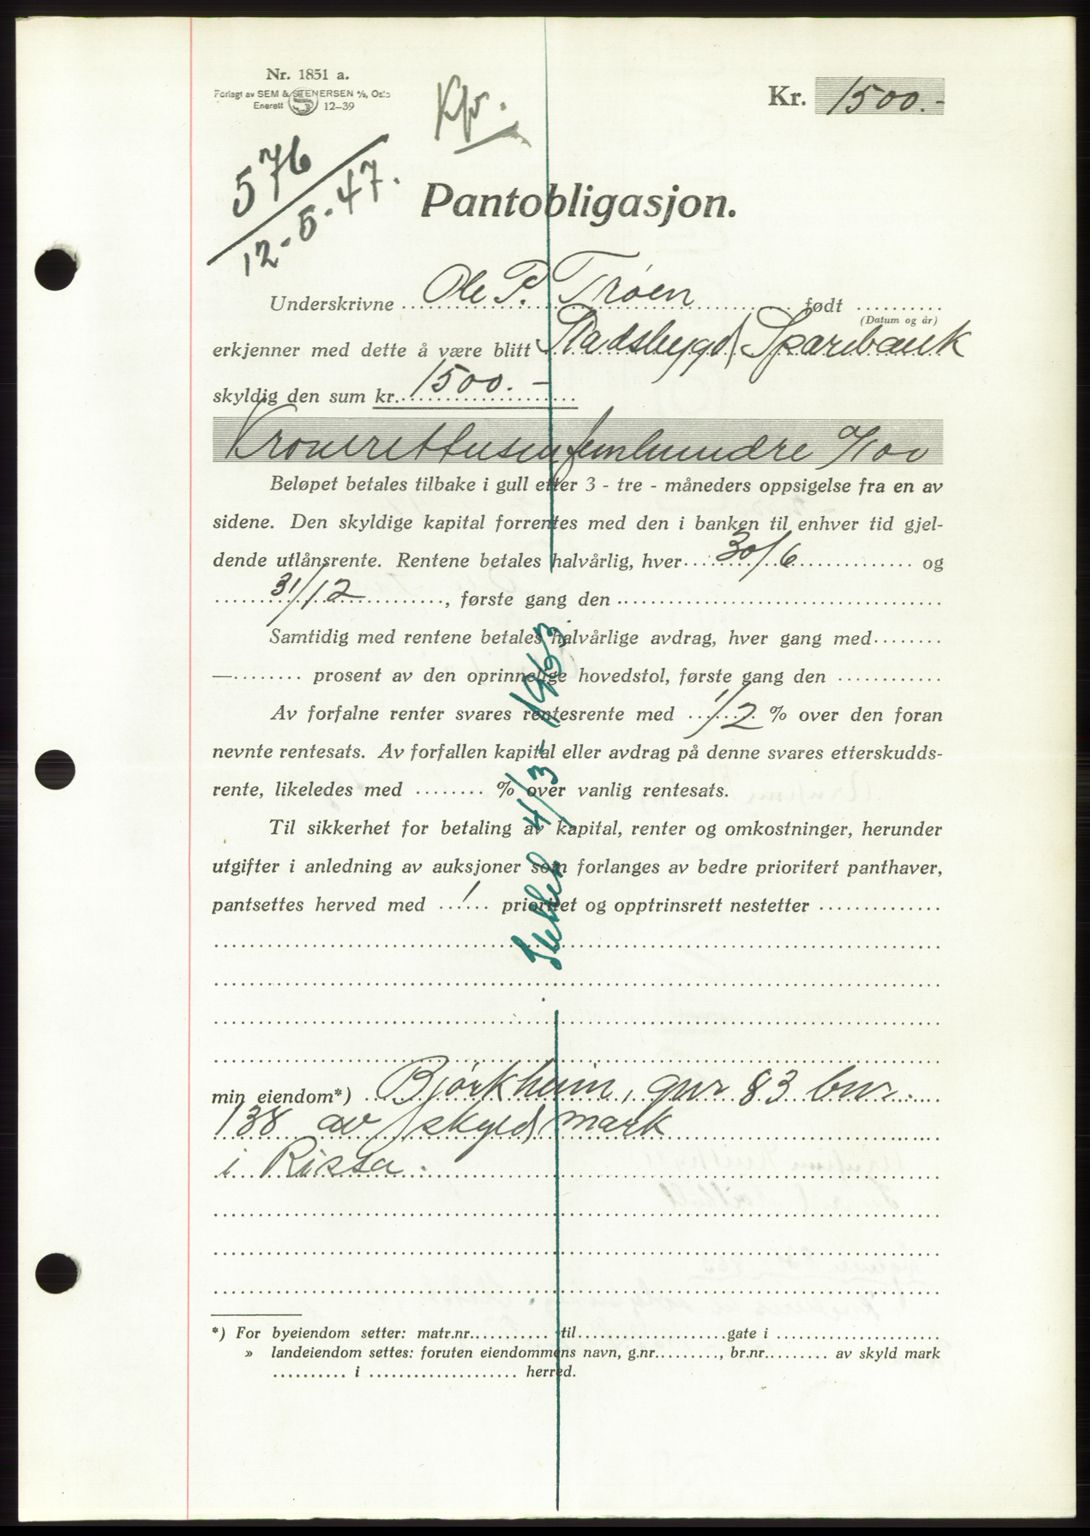 Nr. 1851 a.
Forlagt av SEM & STENERSEN A/S, Oslo
Enerett S 12—39
Kpr.
Kr. 1500.-
576
12-5-47.
Pantobligasjon.
Underskrivne Ole P. Trøen født
(Datum og år)
erkjenner med dette å være blitt Stadsbygd Sparebank
skyldig den sum kr. 1500.-
Kronerettusenfemhundre 0/100
Beløpet betales tilbake i gull etter 3 - tre - måneders oppsigelse fra en av
sidene. Den skyldige kapital forrentes med den i banken til enhver tid gjel-
dende utlånsrente. Rentene betales halvårlig, hver 30/6 og
31/12, første gang den
Samtidig med rentene betales halvårlige avdrag, hver gang med
— prosent av den oprinnelige hovedstol, første gang den
Av forfalne renter svares rentesrente med 1/2 % over den foran
nevnte rentesats. Av forfallen kapital eller avdrag på denne svares etterskudds-
rente, likeledes med % over vanlig rentesats.
Til sikkerhet for betaling av kapital, renter og omkostninger, herunder
utgifter i anledning av auksjoner som forlanges av bedre prioritert panthaver,
pantsettes herved med 1 prioritet og opptrinsrett nestetter
Slettet 4/3-1963
min eiendom*) Bjørkheim, gnr 83 bnr.
138 av skyld mark
i Rissa.
*) For byeiendom setter: matr.nr. til gate i
» landeiendom settes: foruten eiendommens navn, g.nr., br.nr. av skyld mark
i herred.